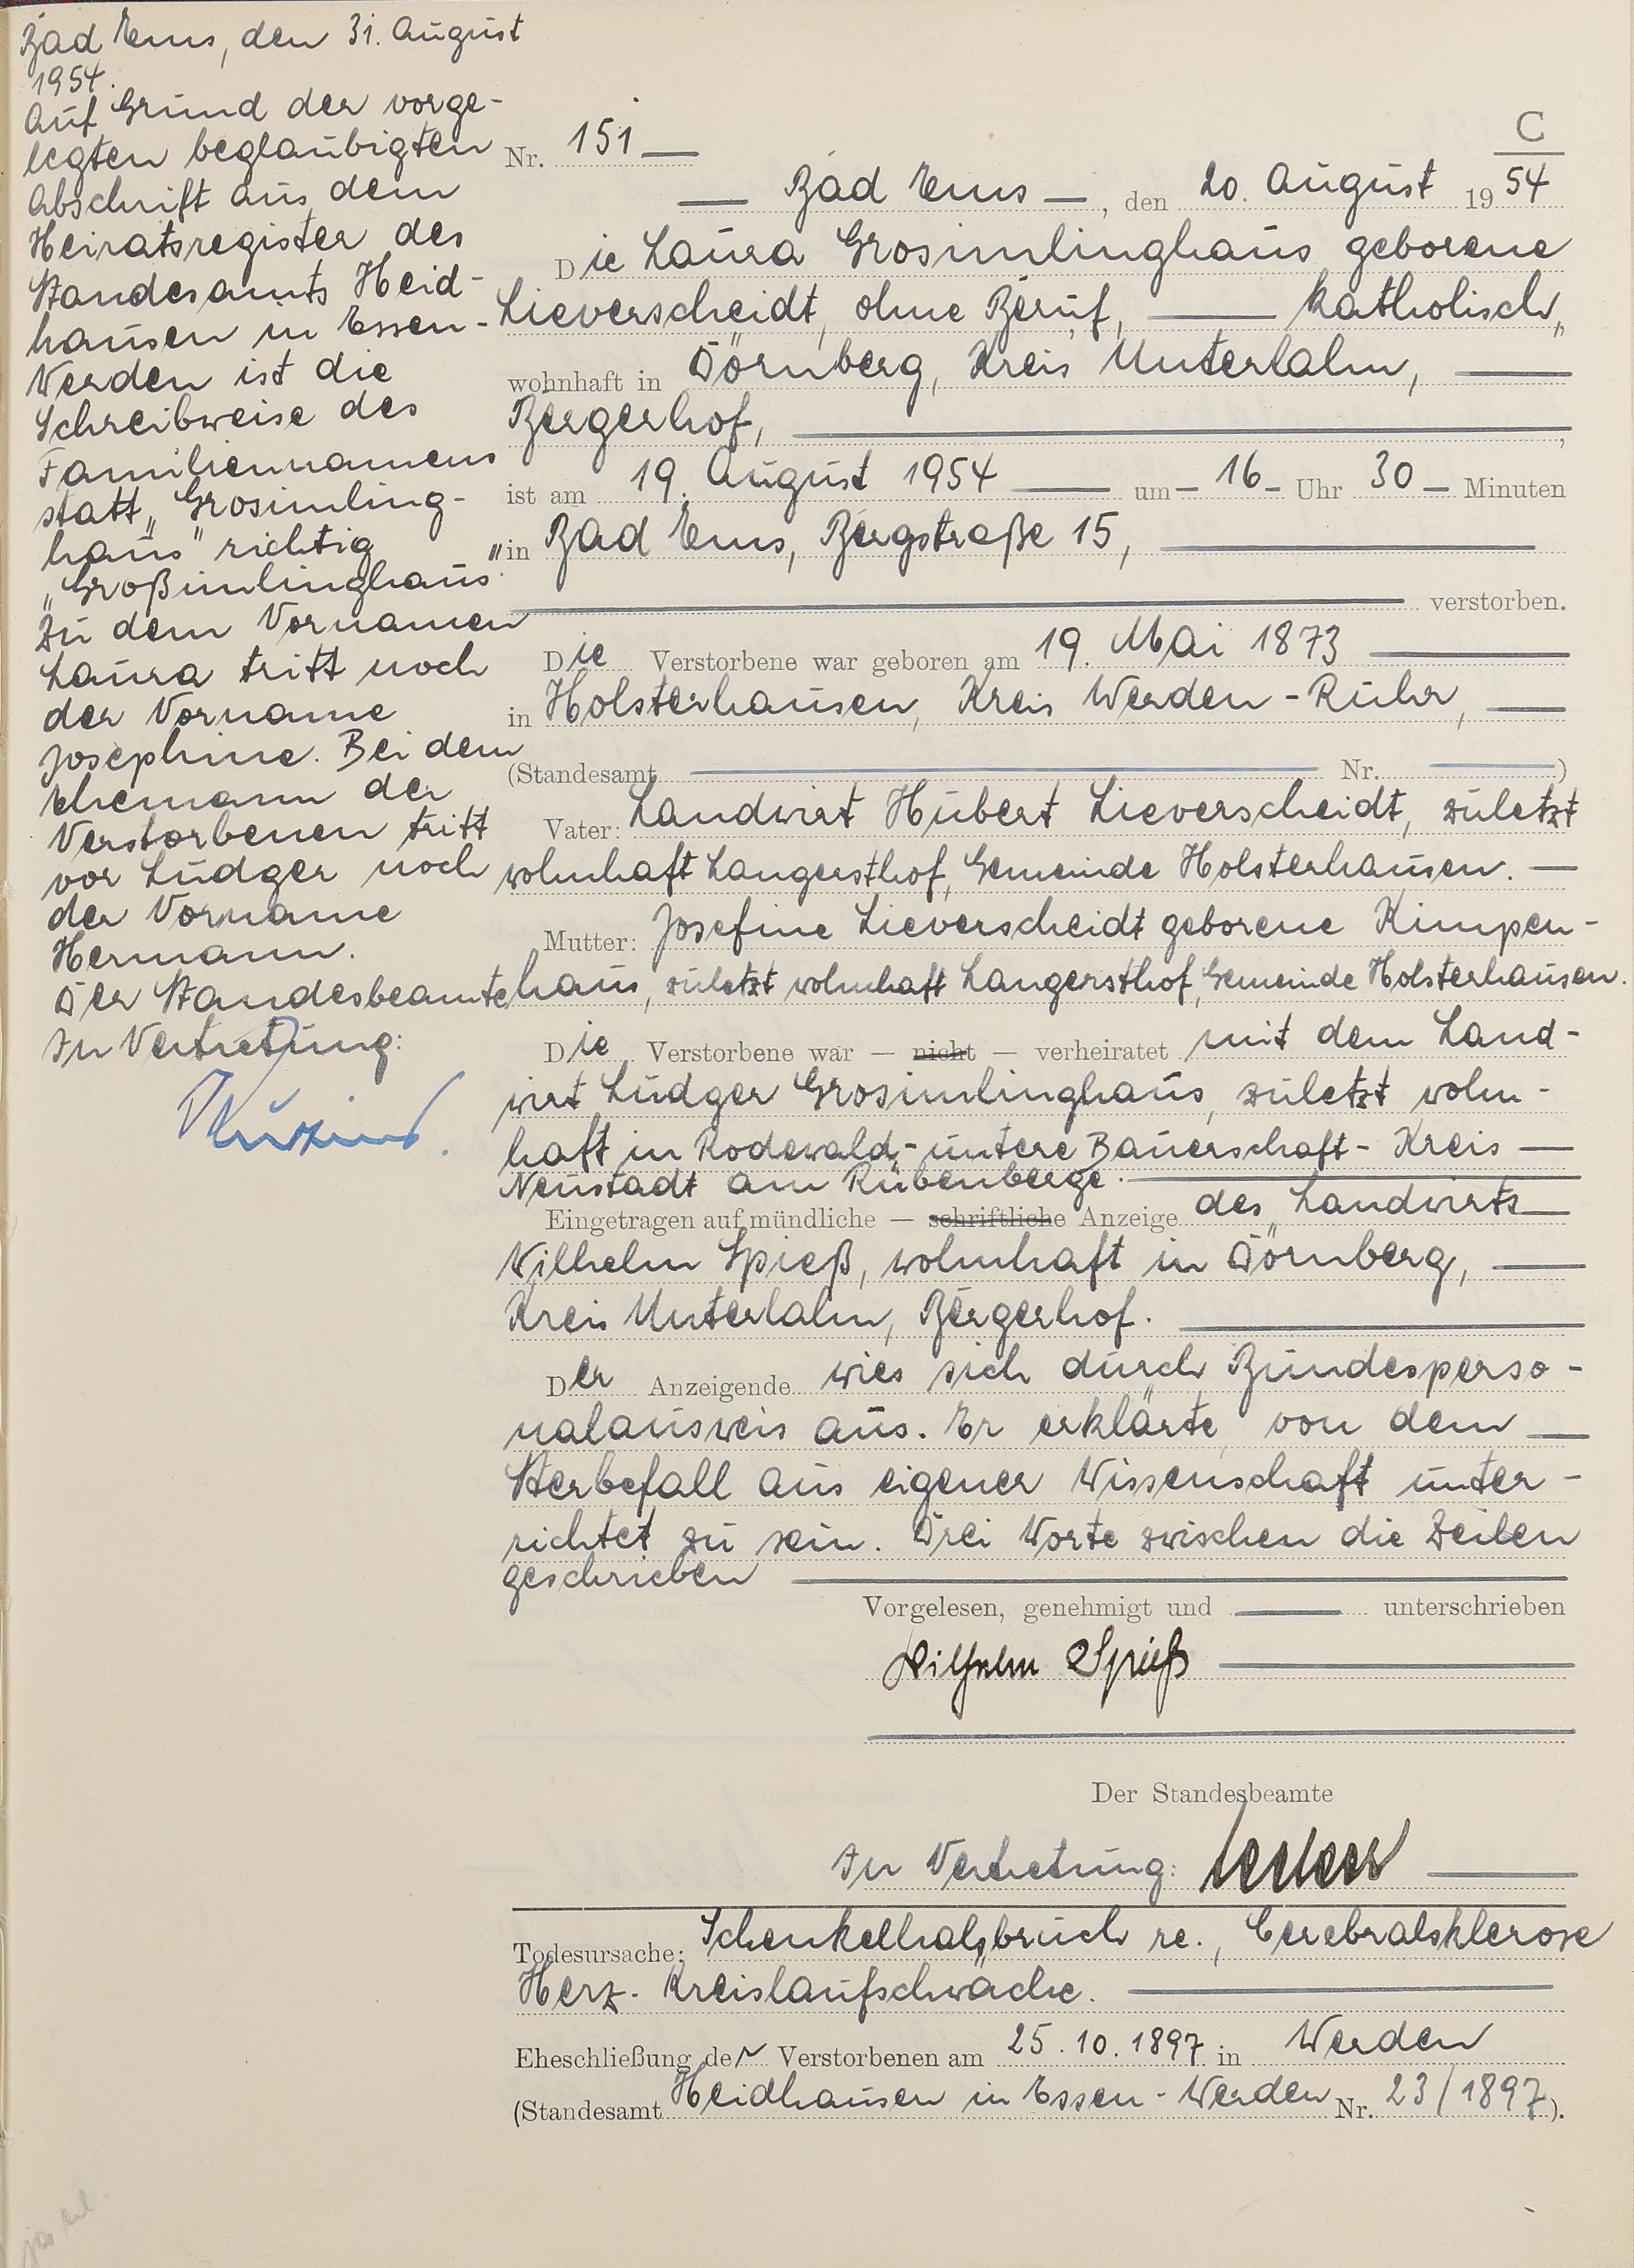 Bad Ems, den 31. August
1954.
Auf Grund der vorge-
legten beglaubigten
Abschrift aus dem
Heiratsregister des
Standesamts Heid-
hausen in Essen-
Werden ist die
Schreibweise des
Familiennamens
statt „Grosimling-
haus" richtig
„Großimlinghaus".
Zu dem Vornamen
Laura tritt noch
der Vorname
Josephine. Bei dem
Ehemann der
Verstorbenen tritt
vor Ludger noch
der Vorname
Hermann.
Der Standesbeamte
In Vertretung:
C
Nr. 151
Bad Ems, den 20. August 1954
Die Laura Grosimlinghaus geborene
Lieverscheidt, ohne Beruf, katholisch,
wohnhaft in Dörnberg, Kreis Unterlahn,
Bergerhof,
ist am 19. August 1954 um 16 Uhr 30 Minuten
in Bad Ems, Bergstraße 15,
verstorben.
Die Verstorbene war geboren am 19. Mai 1873
in Holsterhausen, Kreis Werden-Ruhr,
(Standesamt Nr. )
Vater: Landwirt Hubert Lieverscheidt, zuletzt
wohnhaft Langersthof, Gemeinde Holsterhausen.
Mutter: Josefine Lieverscheidt geborene Kimpen-
haus, zuletzt wohnhaft Langersthof, Gemeinde Holsterhausen.
Die Verstorbene war — nicht — verheiratet mit dem Land-
wirt Ludger Grosimlinghaus, zuletzt wohn-
haft in Rodewald-untere Bauerschaft- Kreis
Neustadt am Rübenberge.
Eingetragen auf mündliche — schriftliche Anzeige des Landwirts
Wilhelm Spieß, wohnhaft in Dörnberg,
Kreis Unterlahn, Bergerhof.
Der Anzeigende wies sich durch Bundesperso-
nalausweis aus. Er erklärte, von dem
Sterbefall aus eigener Wissenschaft unter-
richtet zu sein. Drei Worte zwischen die Zeilen
geschrieben
Vorgelesen, genehmigt und unterschrieben
Wilhelm Spieß
Der Standesbeamte
In Vertretung:
Todesursache: Schenkelhalsbruch re., Cerebralsklerose
Herz- Kreislaufschwäche.
Eheschließung der Verstorbenen am 25.10.1897 in Werden
(Standesamt Heidhausen in Essen-Werden Nr. 23/1897).